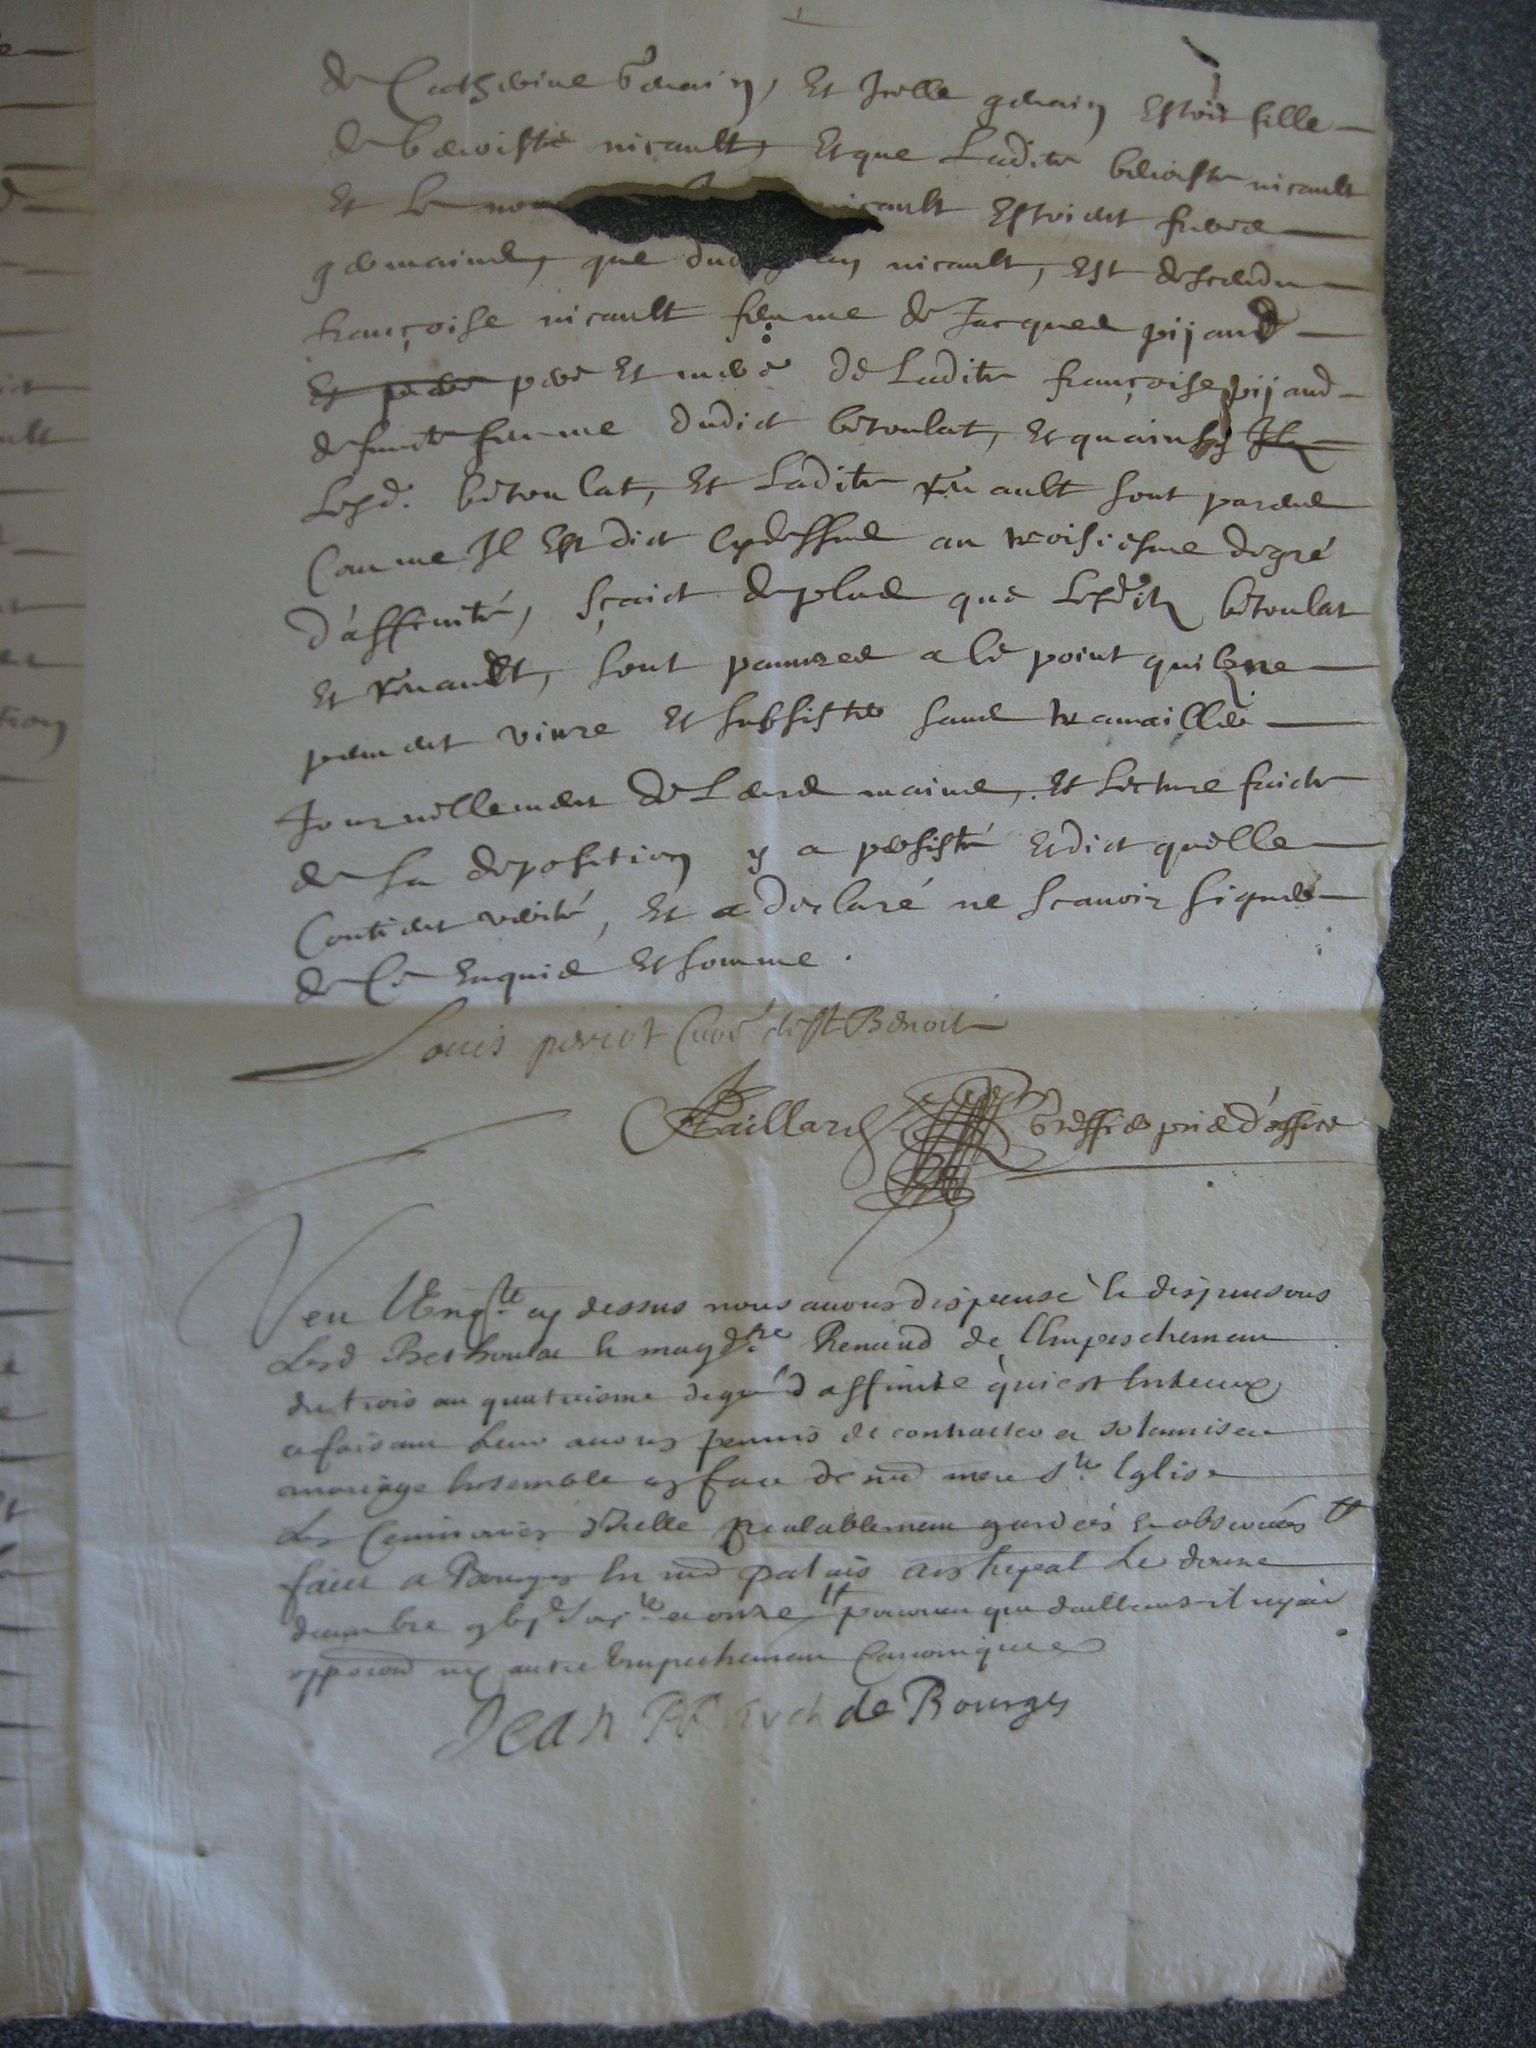 de Catherine Gerain, et Icelle gerain estoit fille
de benoiste nicault, et que Ladite benoiste nicault
et Le nom nicault estoient frere
germains, que dud an nicault, est descendu
françoise nicault femme de Jacques pijaud
et pere pere et mere de Ladite françoise pijaud
defuncte femme dudict betoulat, et quainsy Ilz
Lesd. betoulat, et Ladite renault sont parens
Comme Il est dict cydessus au troisiesme degré
d'affinité, sçait deplus que Lesditz betoulat
et renault, sont pauvres a ce point quilz ne
peuvent vivre et subsister sans travailler
Journellement de Leurs mains, et Lecture faicte
de sa deposition y a persisté et dict quelle
Contient verité, et a declaré ne scavoir signer
de Ce enquis et somme.
Louis periot Curé de St Benoit
Paillard Greffier pris d'office
Veu l'Enqte cy dessus nous avons dispensé & dispensons
Lesd Bethoulat & magdne Renaud de l'Empeschement
du trois au quatriesme degré d'affinité qui est entreux
ce faisant Leur avons permis de contracter et solemniser
mariage ensemble en face de nre mere Ste Eglise
Les Ceremonies d'Icelle prealablement gardées et observées
faict a Bourges en nre palais archiepal Le douze
decembre et onze pourveu que dailleurs il ny ait
opposion ny autre Empechement Canonique
Jean PP. Arch de Bourges